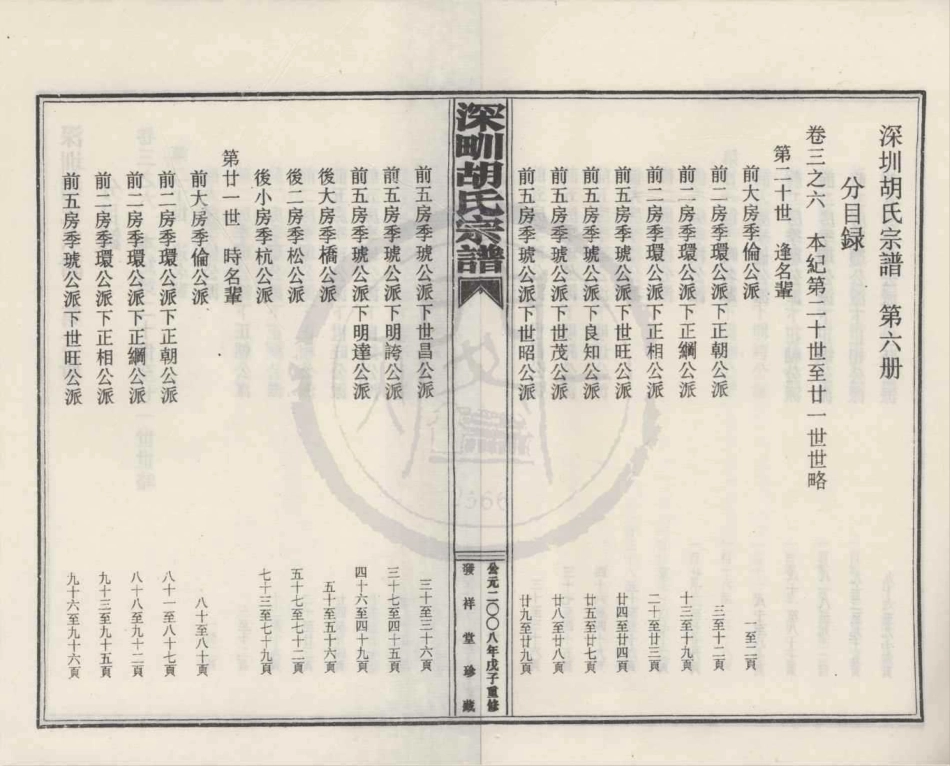 深圳胡氏宗譜　第六册
分目録
卷三之六　本紀第二十世至廿一世世略
第二十世　逢名輩
前大房季倫公派　一至二頁
前二房季環公派下正朝公派　三至十二頁
前二房季環公派下正綱公派　十三至十九頁
前二房季環公派下正相公派　二十至廿三頁
前五房季琥公派下世旺公派　廿四至廿四頁
前五房季琥公派下良知公派　廿五至廿七頁
前五房季琥公派下世茂公派　廿八至廿八頁
前五房季琥公派下世昭公派　廿九至廿九頁
深甽胡氏宗譜
公元二〇〇八年戊子重修
發祥堂珍藏
前五房季琥公派下世昌公派　三十至三十六頁
前五房季琥公派下明誇公派　三十七至四十五頁
前五房季琥公派下明達公派　四十六至四十九頁
後大房季橋公派　五十至五十六頁
後二房季松公派　五十七至七十二頁
後小房季杭公派　七十三至七十九頁
第廿一世　時名輩
前大房季倫公派　八十至八十頁
前二房季環公派下正朝公派　八十一至八十七頁
前二房季環公派下正綱公派　八十八至九十二頁
前二房季環公派下正相公派　九十三至九十五頁
前五房季琥公派下世旺公派　九十六至九十六頁